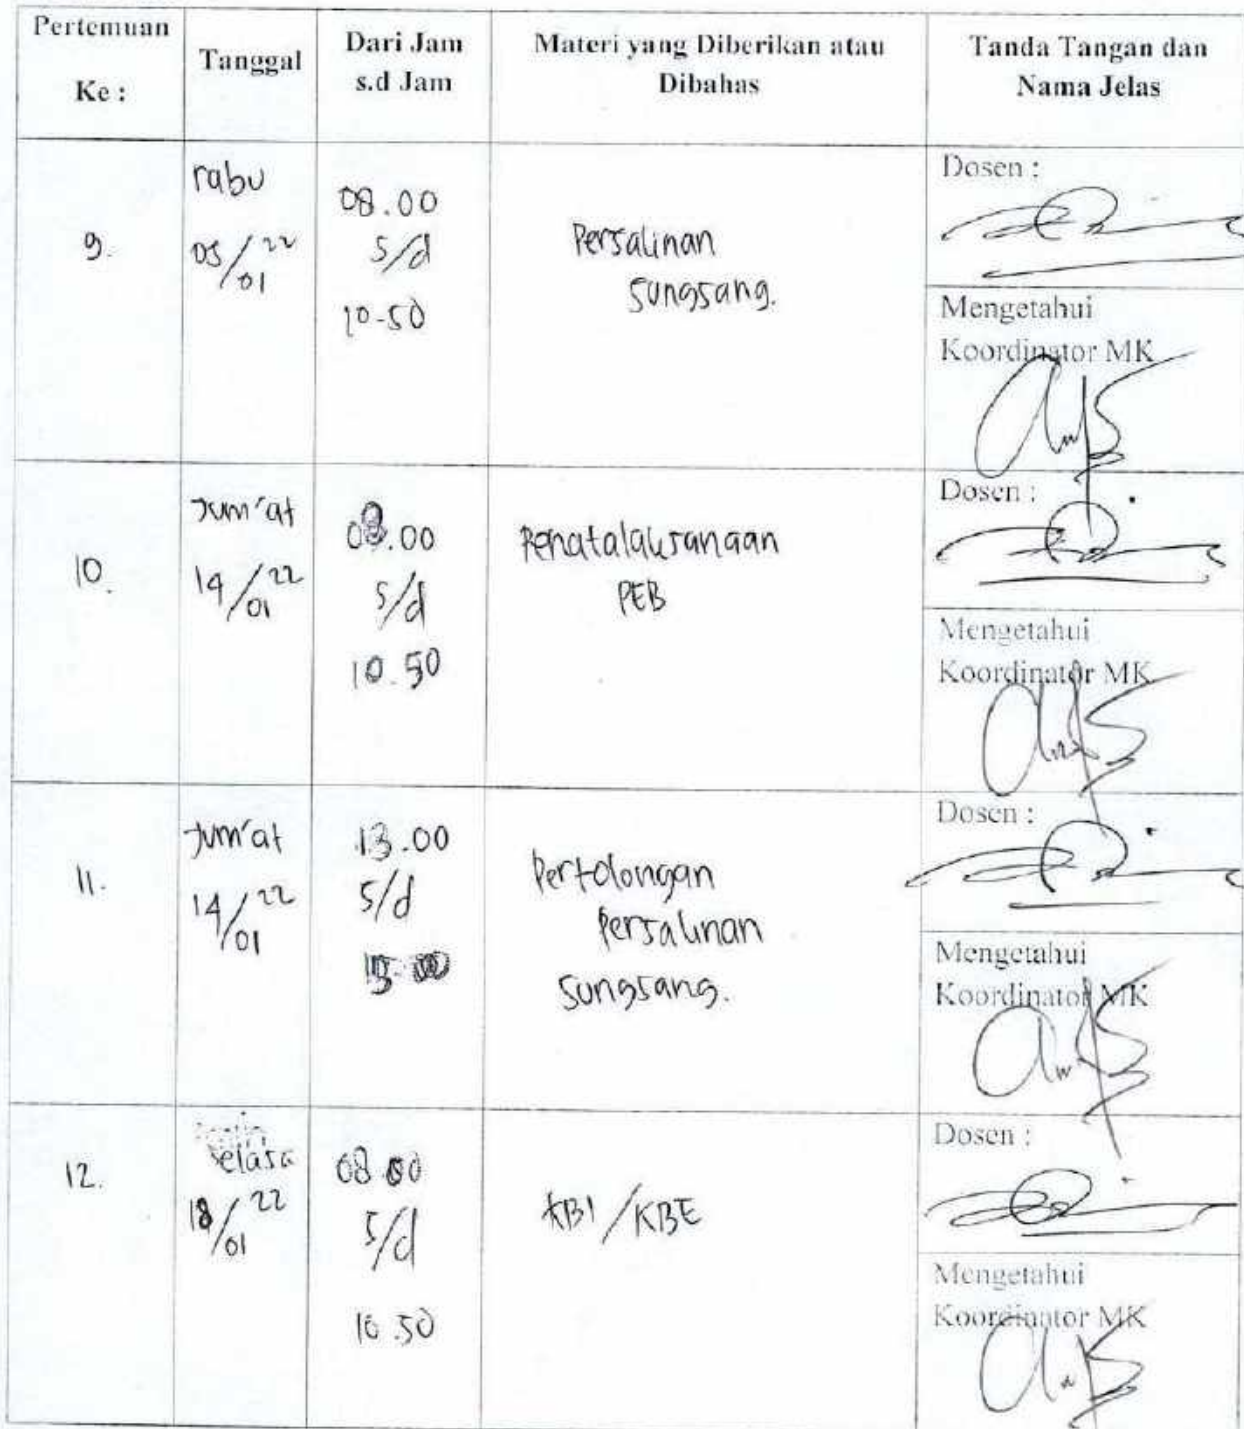 Pertemuan
Ke :
Tanggal
Dari Jam
s.d Jam
Materi yang Diberikan atau
Dibahas
Tanda Tangan dan
Nama Jelas
9.
rabu
05/01 22
08.00
s/d
10-50
Persalinan
Sungsang.
Dosen :
Mengetahui
Koordinator MK
10.
Jum'at
14/01 22
08.00
s/d
10.50
Penatalaksanaan
PEB
Dosen :
Mengetahui
Koordinator MK
11.
Jum'at
14/01 22
13.00
s/d
Pertolongan
Persalinan
Sungsang.
Dosen :
Mengetahui
Koordinator MK
12.
Selasa
18/01 22
08.00
s/d
10.50
KBI/KBE
Dosen :
Mengetahui
Koordinator MK